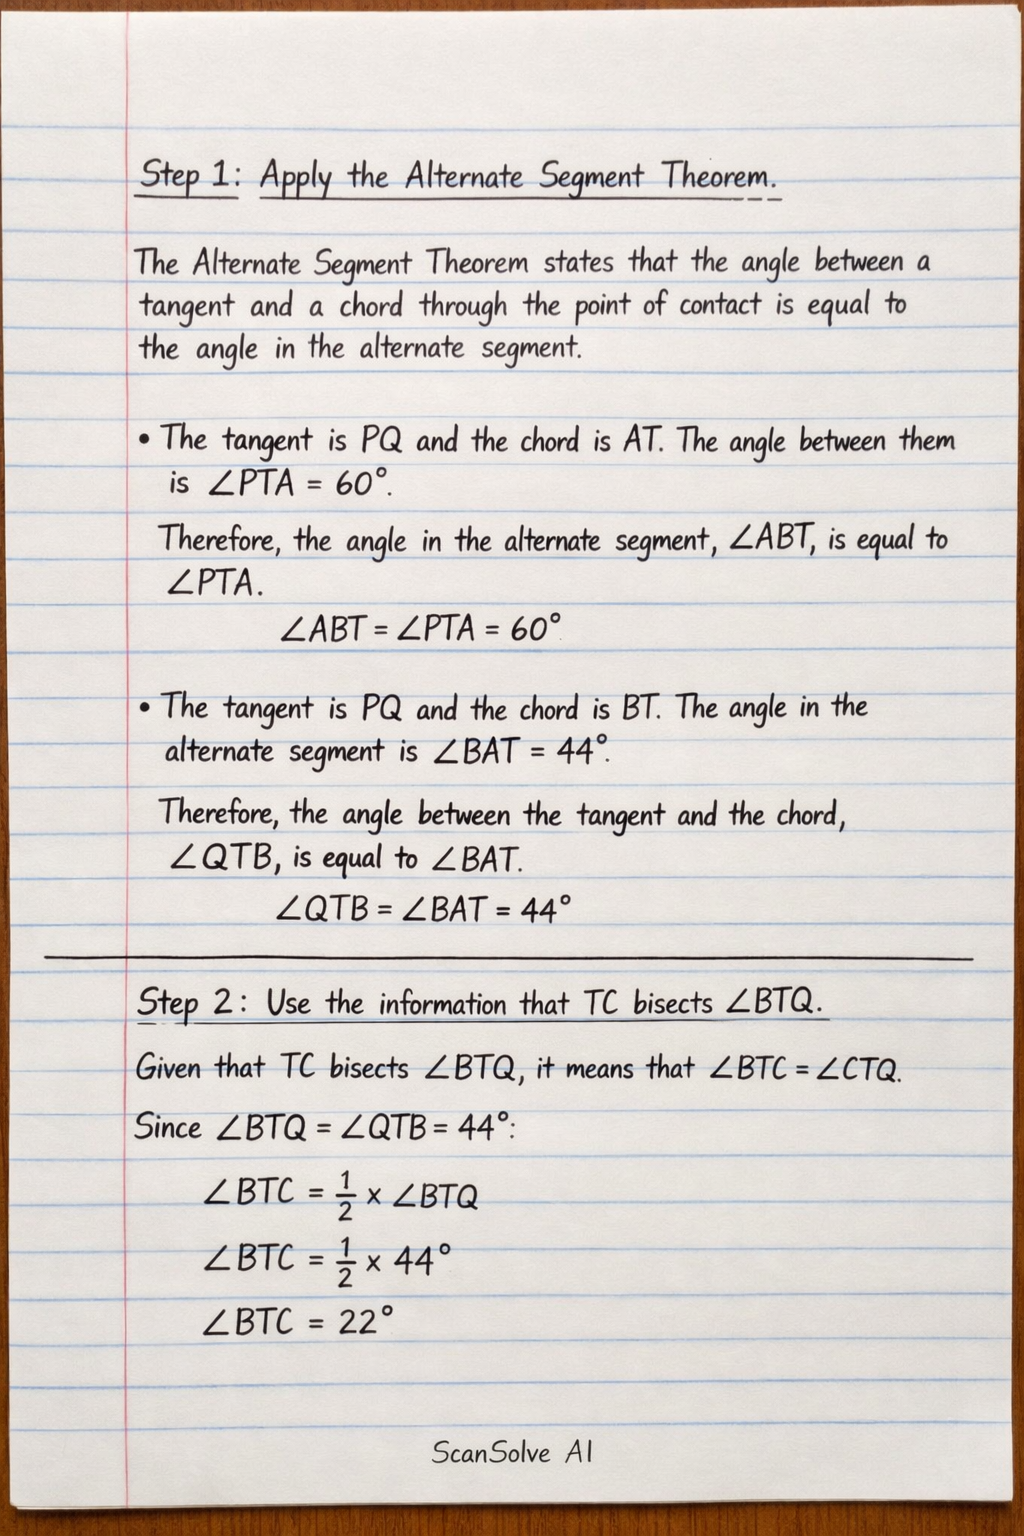 Step 1: Apply the Alternate Segment Theorem.
The Alternate Segment Theorem states that the angle between a
tangent and a chord through the point of contact is equal to
the angle in the alternate segment.
• The tangent is PQ and the chord is AT. The angle between them
is ∠PTA = 60°.
Therefore, the angle in the alternate segment, ∠ABT, is equal to
∠PTA.
∠ABT = ∠PTA = 60°
• The tangent is PQ and the chord is BT. The angle in the
alternate segment is ∠BAT = 44°.
Therefore, the angle between the tangent and the chord,
∠QTB, is equal to ∠BAT.
∠QTB = ∠BAT = 44°
Step 2: Use the information that TC bisects ∠BTQ.
Given that TC bisects ∠BTQ, it means that ∠BTC = ∠CTQ.
Since ∠BTQ = ∠QTB = 44°:
∠BTC = 1/2 × ∠BTQ
∠BTC = 1/2 × 44°
∠BTC = 22°
ScanSolve AI